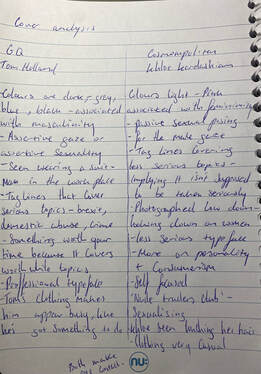 Cover analysis
GQ
Tom Holland
Colours are dark, grey,
blue, black - associated
with masculinity
- Assertive gaze or
assertive sexuality
- Seen wearing a suit -
man in the work place
- Tag lines that cover
serious topics - brexit,
domestic abuse, crime
- Something worth your
time because it covers
worth while topics
- Proffessional typeface
- Tom's clothing makes
him appear busy, like
he's got something to do
Cosmopolitan
Khloe Kardashian
Colours light - Pink
associated with femininity
- passive sexual posing
for the male gaze
- Tag lines covering
less serious topics -
implying it isn't supposed
to be taken seriously
- Photographed low down -
looking down on women
- less serious typeface
- More on personality
+ Consumerism
- Self focused
- 'Nude trailers club' -
Sexualising
- Khloe seen touching her hair
- Clothing very casual
Both make
nu: